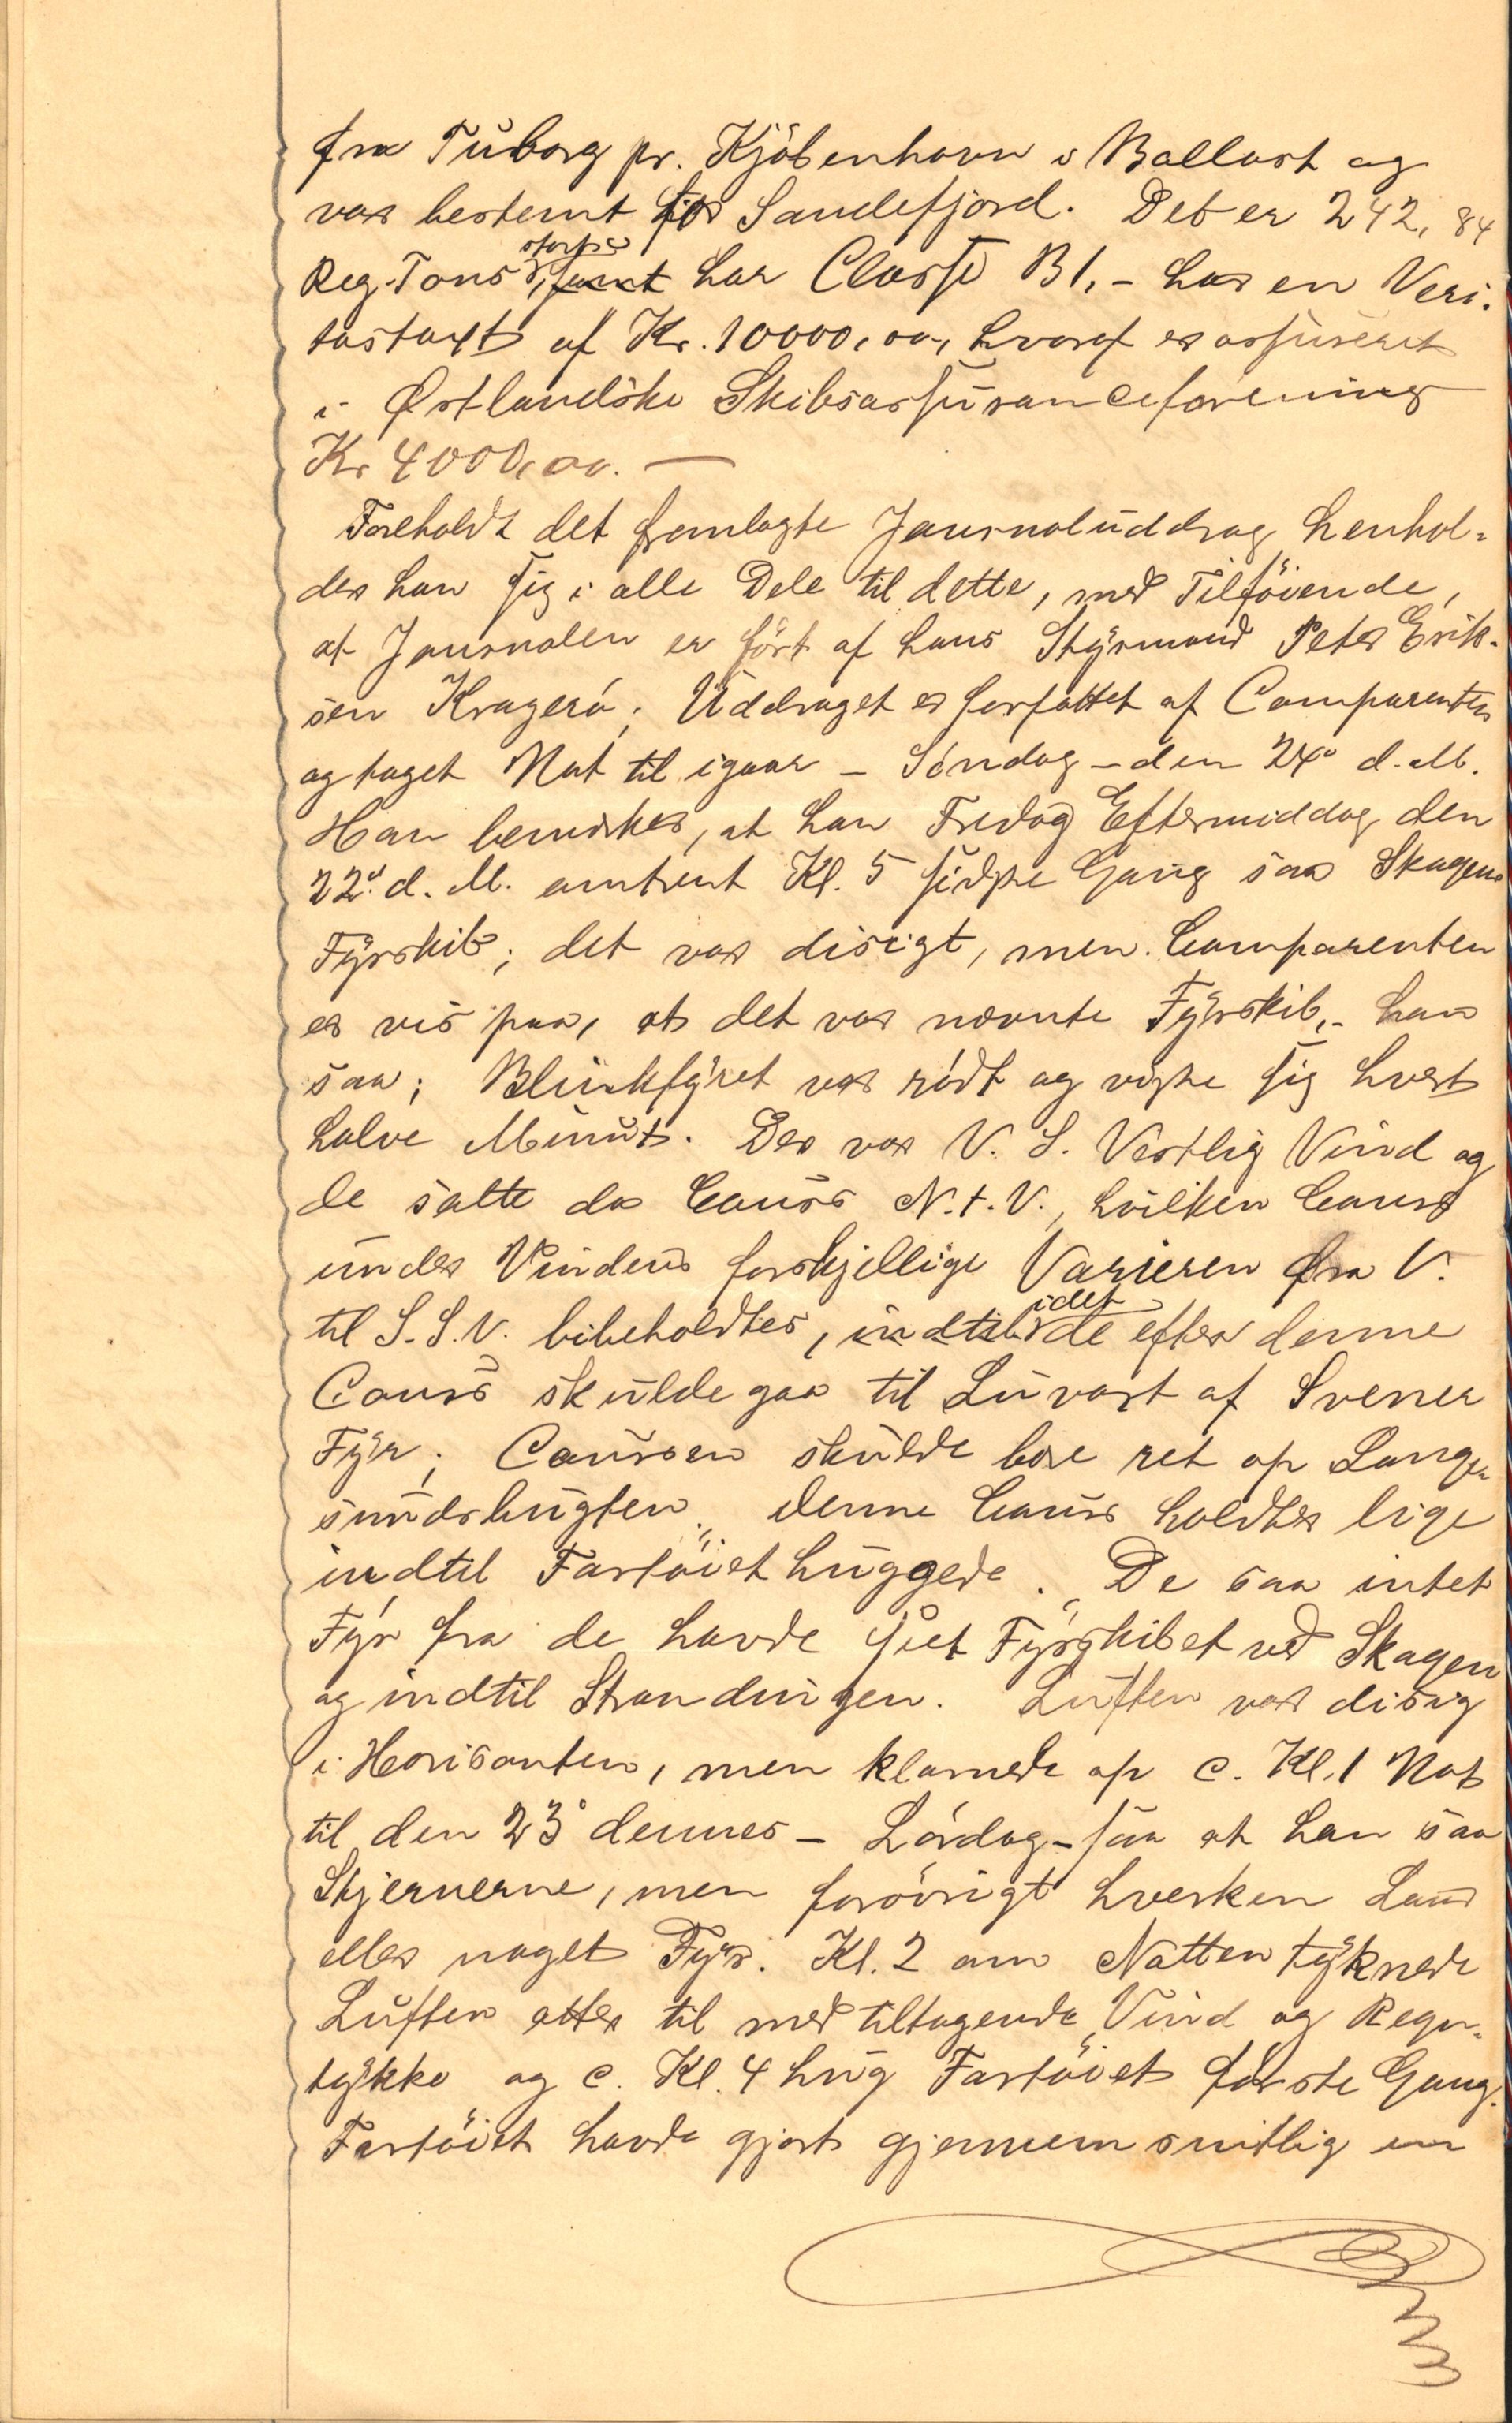 fra Tuborg pr. Kjöbenhavn i Ballast og
var bestemt for Sandefjord. Det er 242,84
Reg. Tons stort, samt har Classe B1, - har en Veri-
tastaxt af Kr. 10000,00, hvoraf er assureret
i Østlandske Skibsassuranceforening
Kr 4000,00. —
Foreholdt det fremlagte Journaluddrag henhol-
der han sig i alle Dele til dette, med Tilföiende,
at Journalen er fört af hans Styrmand Peter Erik-
sen Kragerö; Uddraget er forfattet af Comparenten
og taget Nat til igaar - Söndag - den 24° d. M.
Han bemærker, at han Fredag Eftermiddag den
22° d. M. omtrent Kl. 5 sidste Gang saa Skagens
Fyrskib; det var disigt, men Comparenten
er vis paa, at det var nævnte Fyrskib, han
saa; Blinkfyret var rödt og viste sig hvert
halve Minut. Der var V. S. Vestlig Vind og
de satte da Cours N. t. V., hvilken Cours
under Vindens forskjellige Varieren fra V.
til S. S. V. bibeholdtes, indtil idet de efter denne
Cours skulde gaa til Luvart af Svener
Fyr; Coursen skulde bære ret op Lange-
sundsbugten. Denne Cours holdtes lige
indtil Fartöiet huggede. De saa intet
Fyr fra de havde seet Fyrskibet ved Skagen
og indtil Strandingen. Luften var disig
i Horisonten, men klarnede op c. Kl. 1 Nat
til den 23° dennes - Lördag - saa at han saa
Stjernerne, men forövrigt hverken Land
eller noget Fyr. Kl. 2 om Natten tyknede
Luften atter til med tiltagende Vind og Regn-
tykke og c. Kl. 4 hug Fartöiet förste Gang.
Fartöiet havde gjort gjennemsnitlig en